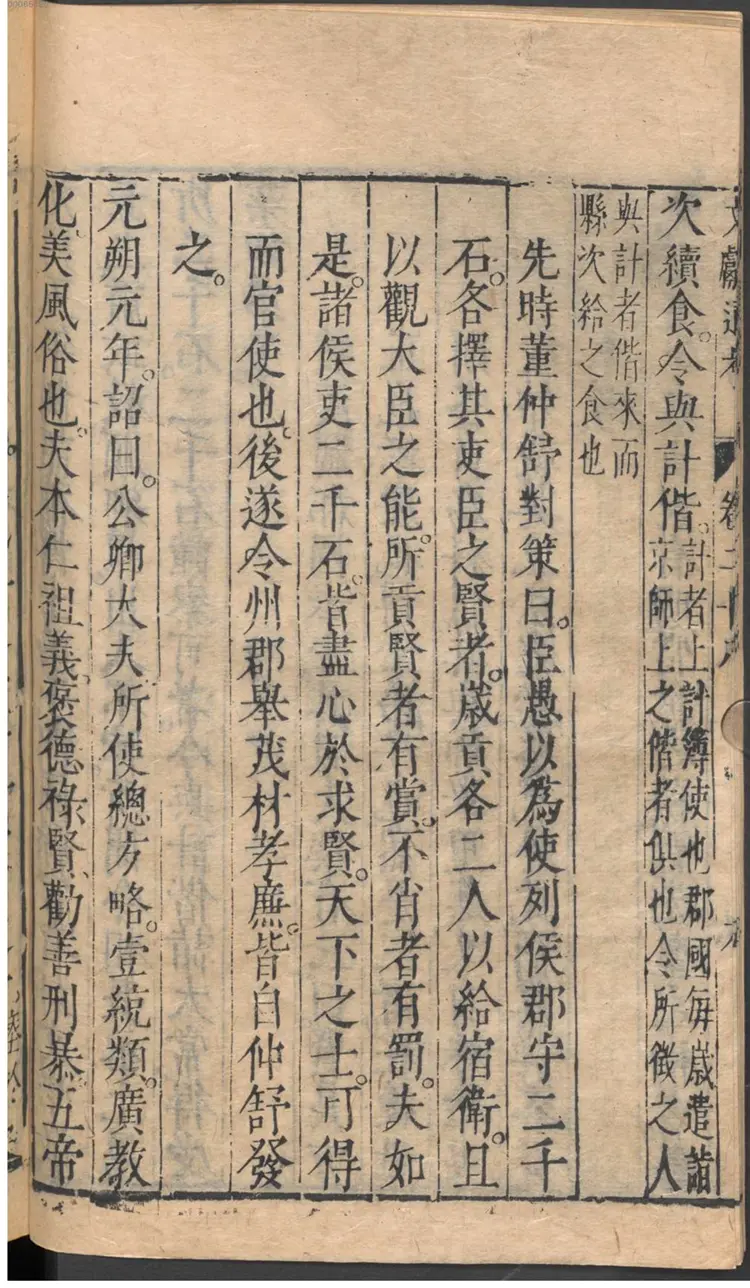 文獻通考 卷二十八
次續食。令與計偕。計者上計簿使也郡國每歲遣詣
京師上之偕者俱也令所徵之人
與計者偕來而
縣次給之食也
先時董仲舒對策曰。臣愚以爲使列侯郡守二千
石。各擇其吏臣之賢者。歲貢各二人以給宿衛。且
以觀大臣之能。所貢賢者有賞。不肖者有罰。夫如
是。諸侯吏二千石。皆盡心於求賢。天下之士。可得
而官使也。後遂令州郡舉茂材孝廉。皆自仲舒發
之。
元朔元年。詔曰。公卿大夫所使總方略。壹統類。廣教
化、美風俗也。夫本仁祖義、褒德祿賢、勸善刑暴。五帝